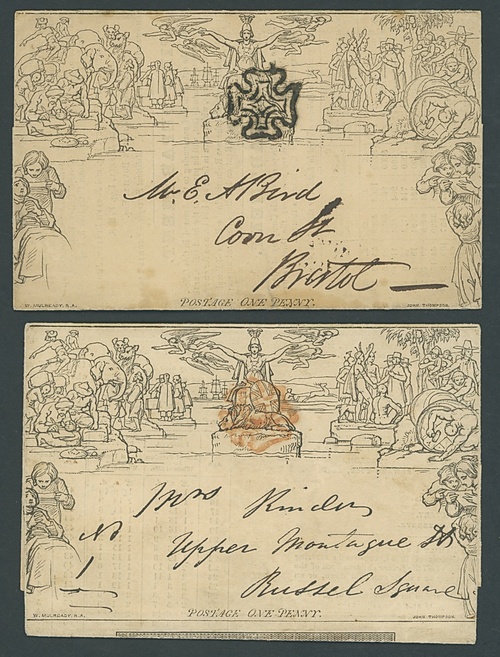 Mr. E. A Bird
Corn St
Bristol
W. MULREADY, R.A.
POSTAGE ONE PENNY.
JOHN THOMPSON.
Mrs Kinder
No 1
Upper Montague St
Russel Square
W. MULREADY, R.A.
POSTAGE ONE PENNY.
JOHN THOMPSON.